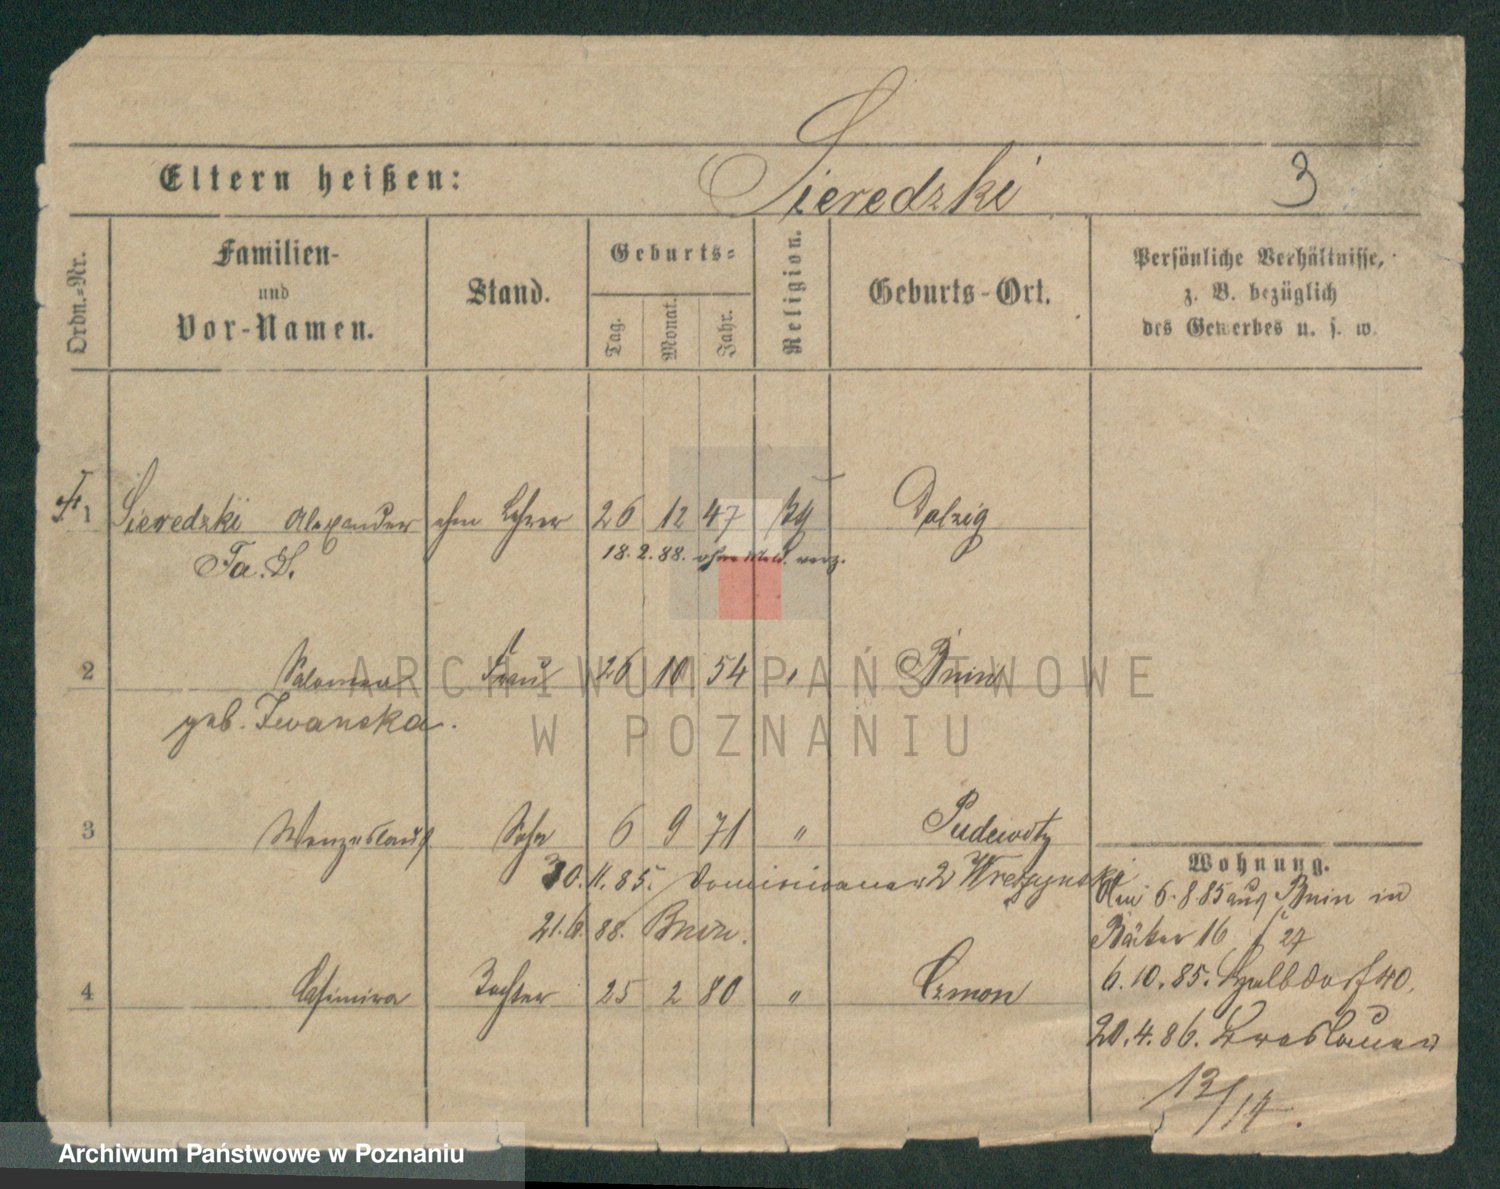 Sieredzki
Eltern heißen:
3
Ordn.-Nr.
Familien-
und
Vor-Namen.
Stand.
Geburts-
Tag.
Monat.
Jahr.
Religion.
Geburts-Ort.
Persönliche Verhältnisse,
z. B. bezüglich
des Gewerbes u. s. w.
1 Sieredzki Alexander ehm Lehrer 26 12 47 Dolzig
18. 2. 88. ohne Meld. verz.
2 Salomea Frau 26 10 54 " Bnin
geb. Iwanska.
3 Wenzeslaus Sohn 6 9 71 " Pudewitz
30. 11. 85. Dominicaner 2 Wreszynski
21. 6. 88. Bnin.
4 Casimira Tochter 25 2 80 " Czmon
Wohnung.
6. 8 85 aus Bnin in
Bäcker 16 / 27
6. 10. 85. 40.
20. 4. 86. Breslauer
13/14.
ARCHIWUM PAŃSTWOWE
W POZNANIU
Archiwum Państwowe w Poznaniu